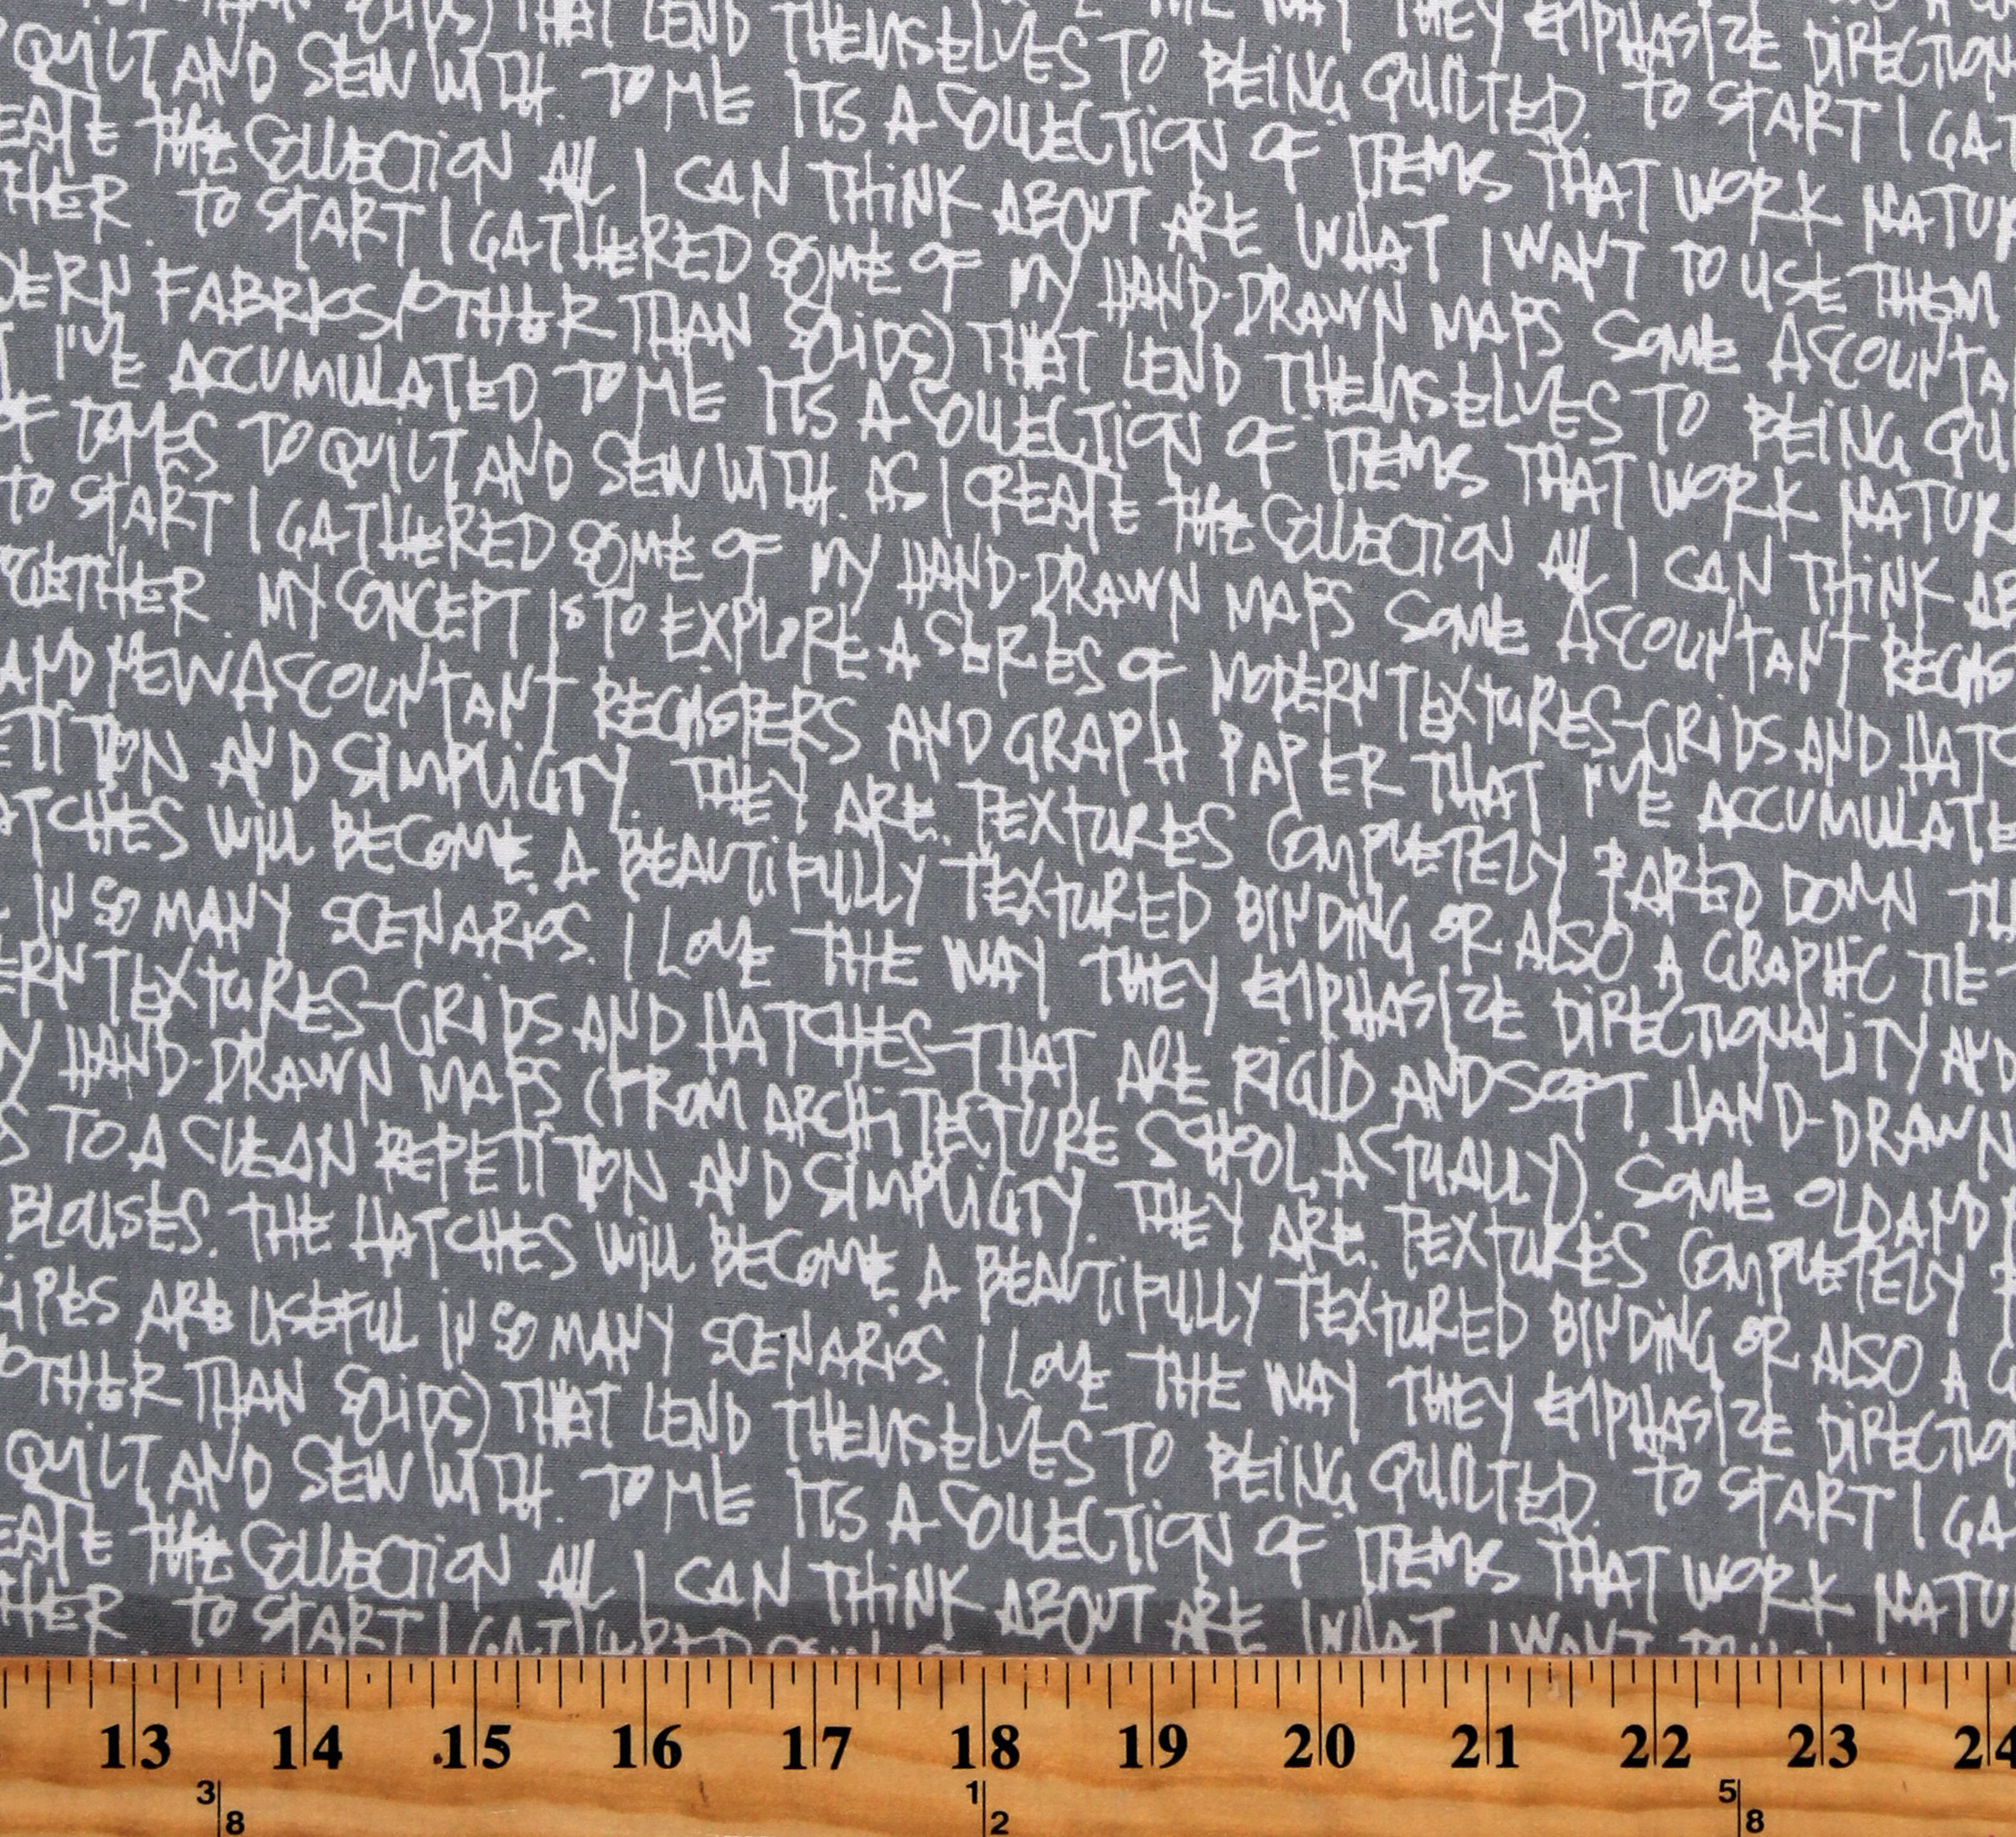 THAT LEND THEMSELVES TO BEING QUILTED. TO START I GAT
QUILT AND SEW WITH. TO ME ITS A COLLECTION OF ITEMS THAT WORK NATUR
EATE THE COLLECTION ALL I CAN THINK ABOUT ARE WHAT I WANT TO USE THEM
THER TO START I GATHERED SOME OF MY HAND-DRAWN MAPS SOME ACCOUNTA
DERN FABRICS (OTHER THAN SOLIDS) THAT LEND THEMSELVES TO BEING QUI
T I'VE ACCUMULATED TO ME ITS A COLLECTION OF ITEMS THAT WORK NATUR
TO QUILT AND SEW WITH. AS I CREATE THE COLLECTION ALL I CAN THINK AB
TO START I GATHERED SOME OF MY HAND-DRAWN MAPS SOME ACCOUNTANT REGIS
OGETHER MY CONCEPT IS TO EXPLORE A SERIES OF MODERN TEXTURES-GRIDS AND HATC
AND NEW ACCOUNTANT REGISTERS AND GRAPH PAPER THAT I'VE ACCUMULATE
ETITION AND SIMPLICITY. THEY ARE TEXTURES COMPLETELY PARED DOWN
ATCHES WILL BECOME A BEAUTIFULLY TEXTURED BINDING OR ALSO A GRAPHIC TIE
IN SO MANY SCENARIOS. I LOVE THE WAY THEY EMPHASIZE DIRECTIONALITY AND
ERN TEXTURES-GRIDS AND HATCHES-THAT ARE RIGID AND SOFT. HAND-DRAWN
Y HAND-DRAWN MAPS (FROM ARCHITECTURE SCHOOL, ACTUALLY). SOME OLD AND
S TO A CLEAN REPETITION AND SIMPLICITY. THEY ARE TEXTURES COMPLETELY
BLOUSES. THE HATCHES WILL BECOME A BEAUTIFULLY TEXTURED BINDING OR ALSO A G
IPES ARE USEFUL IN SO MANY SCENARIOS. I LOVE THE WAY THEY EMPHASIZE DIRECTIO
OTHER THAN SOLIDS) THAT LEND THEMSELVES TO BEING QUILTED. TO START I GA
QUILT AND SEW WITH. TO ME ITS A COLLECTION OF ITEMS THAT WORK NATU
EATE THE COLLECTION ALL I CAN THINK ABOUT ARE WHAT I WANT
THER TO START I GATHERED
13 14 15 16 17 18 19 20 21 22 23 24
3/8 1/2 5/8